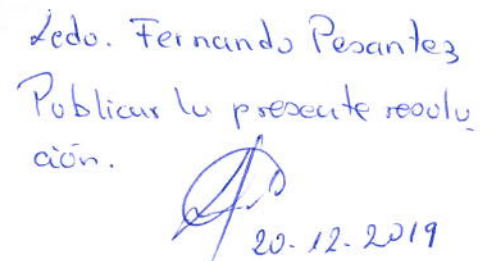 Lcdo. Fernando Pesantez
Publicar la presente resolu
ción.
20-12-2019